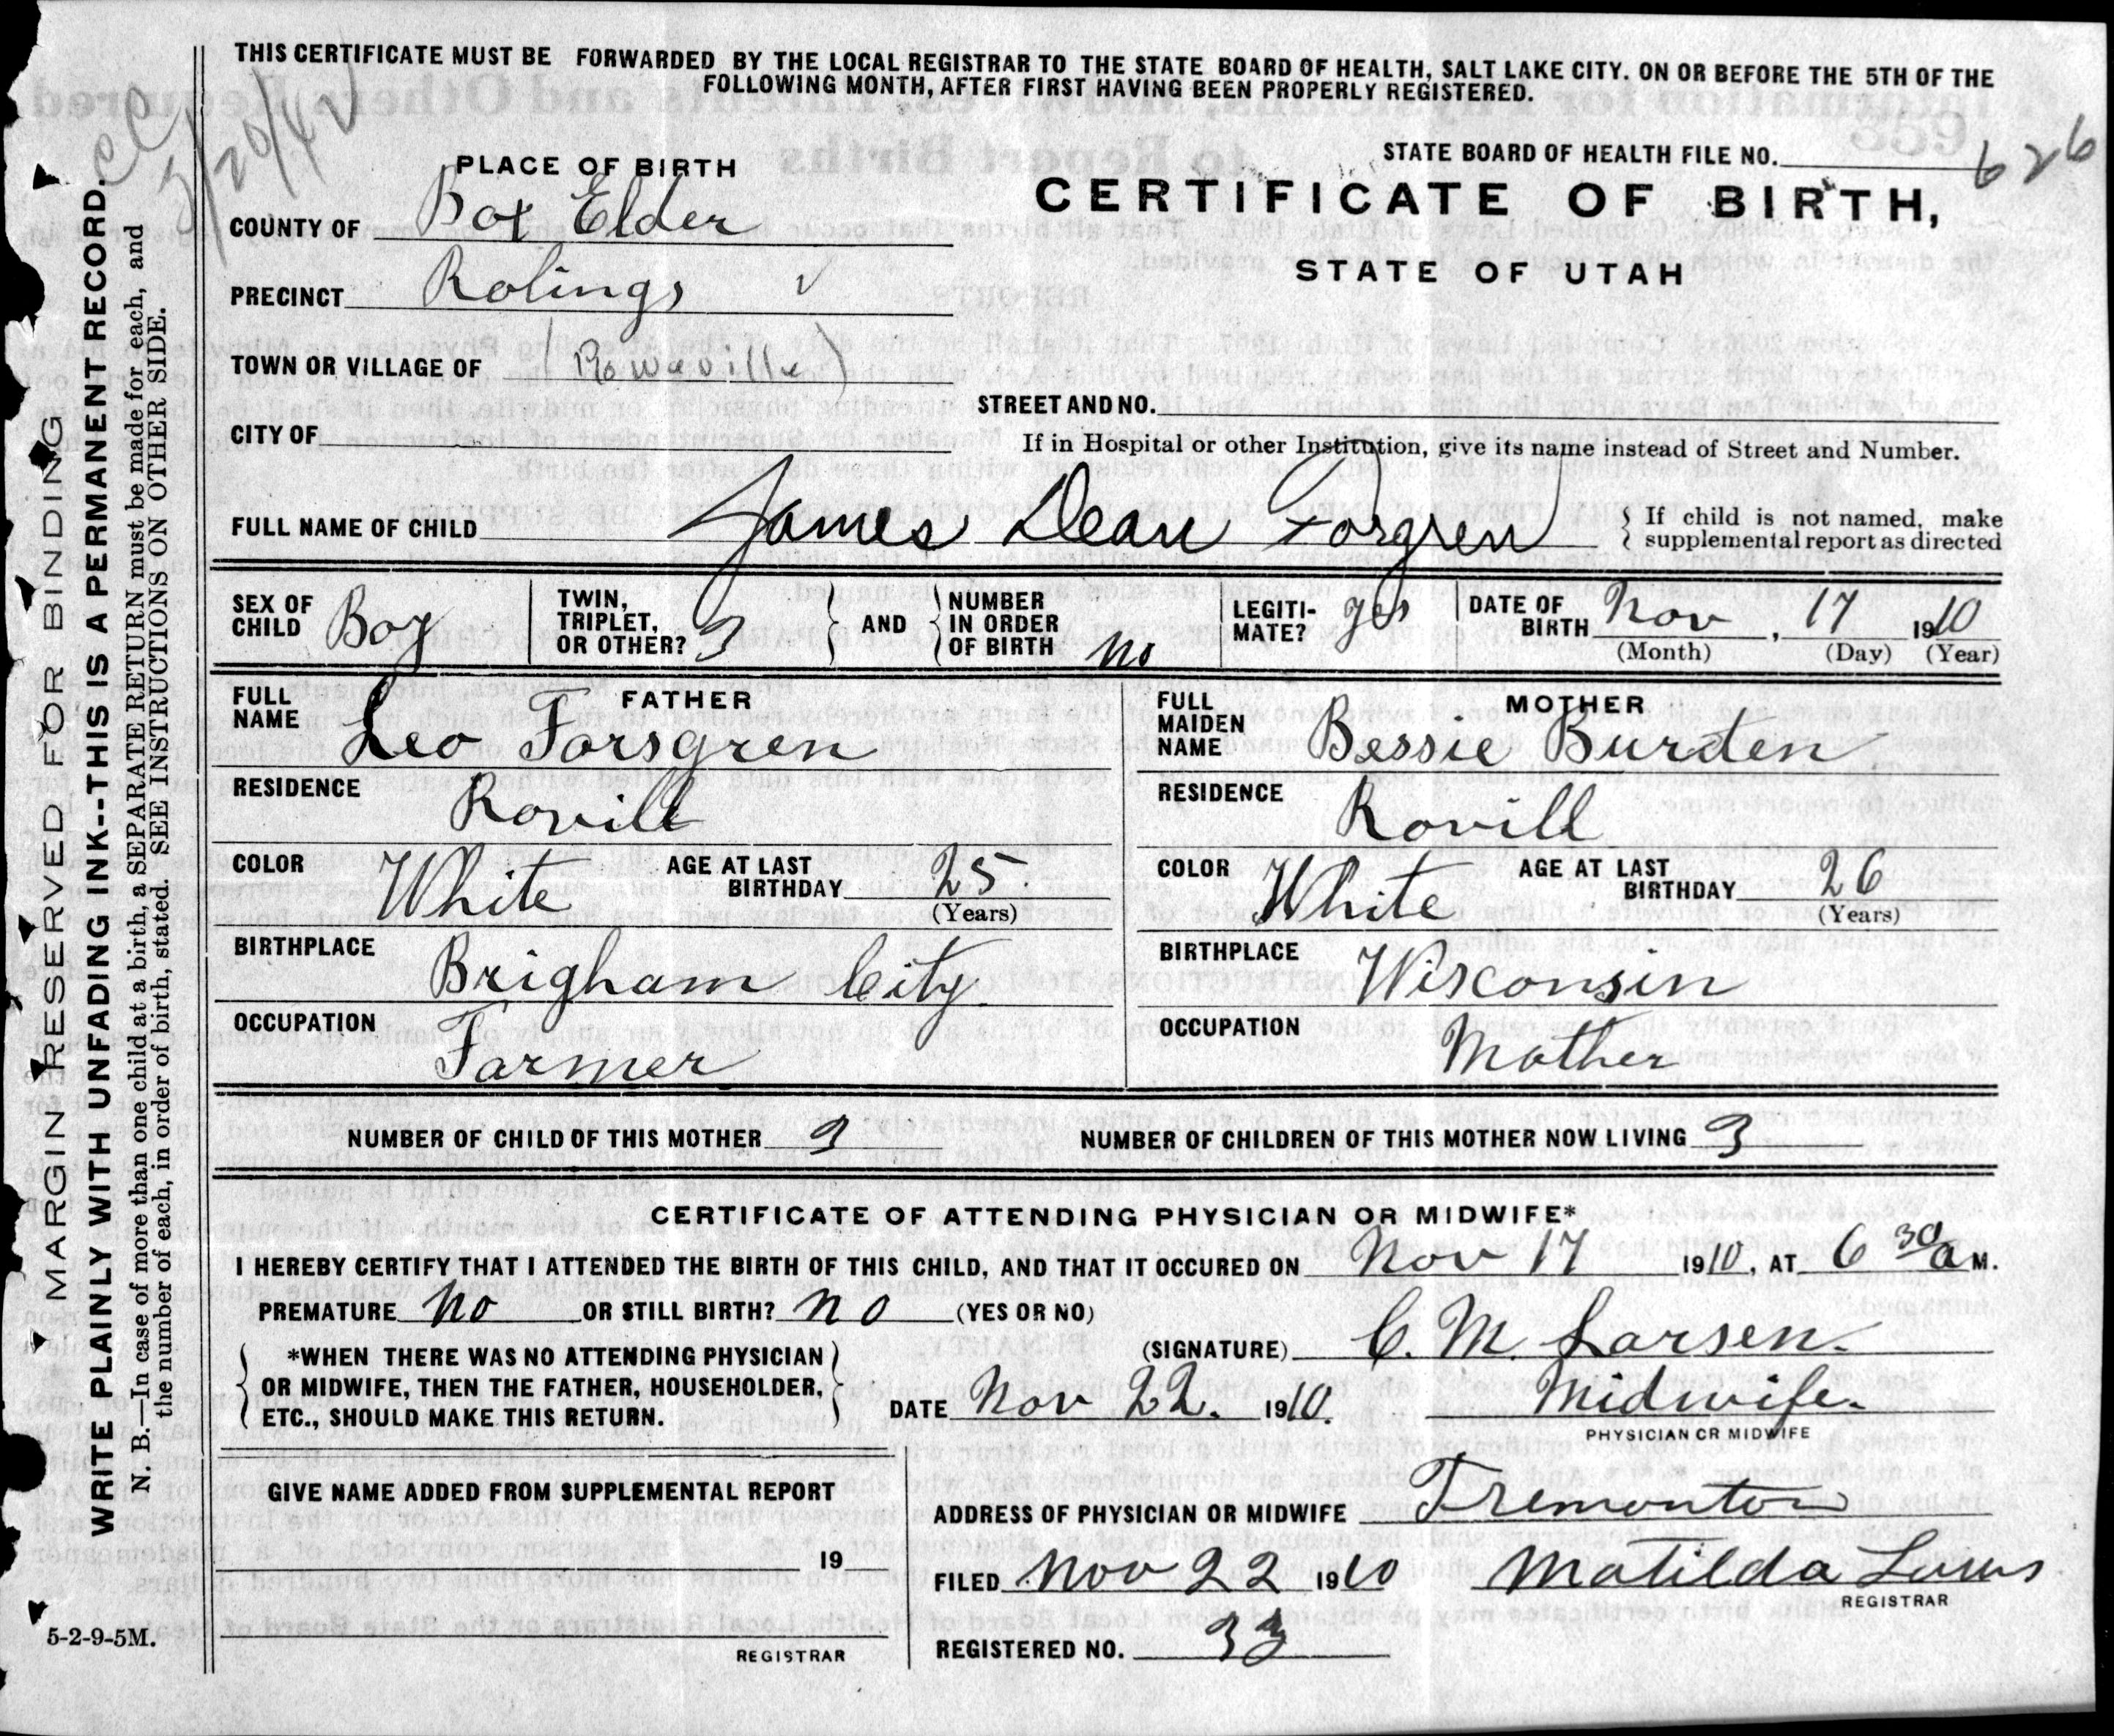 THIS CERTIFICATE MUST BE FORWARDED BY THE LOCAL REGISTRAR TO THE STATE BOARD OF HEALTH, SALT LAKE CITY. ON OR BEFORE THE 5TH OF THE
FOLLOWING MONTH, AFTER FIRST HAVING BEEN PROPERLY REGISTERED.
PLACE OF BIRTH
STATE BOARD OF HEALTH FILE NO. 626
CERTIFICATE OF BIRTH,
STATE OF UTAH
COUNTY OF Box Elder
PRECINCT Rolings
TOWN OR VILLAGE OF
STREET AND NO.
CITY OF
If in Hospital or other Institution, give its name instead of Street and Number.
FULL NAME OF CHILD James Dean Forgren
If child is not named, make
supplemental report as directed
SEX OF CHILD Boy
TWIN, TRIPLET, OR OTHER? 3
AND
NUMBER IN ORDER OF BIRTH no
LEGITI-MATE? yes
DATE OF BIRTH Nov, 17 1910
(Month) (Day) (Year)
FATHER
FULL NAME Leo Forsgren
RESIDENCE Rovill
COLOR White AGE AT LAST BIRTHDAY 25
(Years)
BIRTHPLACE Brigham City.
OCCUPATION Farmer
MOTHER
FULL MAIDEN NAME Bessie Burden
RESIDENCE Rovill
COLOR White AGE AT LAST BIRTHDAY 26
(Years)
BIRTHPLACE Wisconsin
OCCUPATION Mother
NUMBER OF CHILD OF THIS MOTHER 3 NUMBER OF CHILDREN OF THIS MOTHER NOW LIVING 3
CERTIFICATE OF ATTENDING PHYSICIAN OR MIDWIFE*
I HEREBY CERTIFY THAT I ATTENDED THE BIRTH OF THIS CHILD, AND THAT IT OCCURED ON Nov 17 1910, AT 6 30 a M.
PREMATURE no OR STILL BIRTH? no (YES OR NO)
*WHEN THERE WAS NO ATTENDING PHYSICIAN
OR MIDWIFE, THEN THE FATHER, HOUSEHOLDER,
ETC., SHOULD MAKE THIS RETURN.
(SIGNATURE) C. M. Larsen.
DATE Nov 22. 1910. Midwife.
PHYSICIAN OR MIDWIFE
GIVE NAME ADDED FROM SUPPLEMENTAL REPORT
19
REGISTRAR
ADDRESS OF PHYSICIAN OR MIDWIFE Tremonton
FILED Nov 22 1910 Matilda
REGISTRAR
REGISTERED NO. 33
MARGIN RESERVED FOR BINDING
WRITE PLAINLY WITH UNFADING INK--THIS IS A PERMANENT RECORD.
N. B.—In case of more than one child at a birth, a SEPARATE RETURN must be made for each, and
the number of each, in order of birth, stated. SEE INSTRUCTIONS ON OTHER SIDE.
5-2-9-5M.